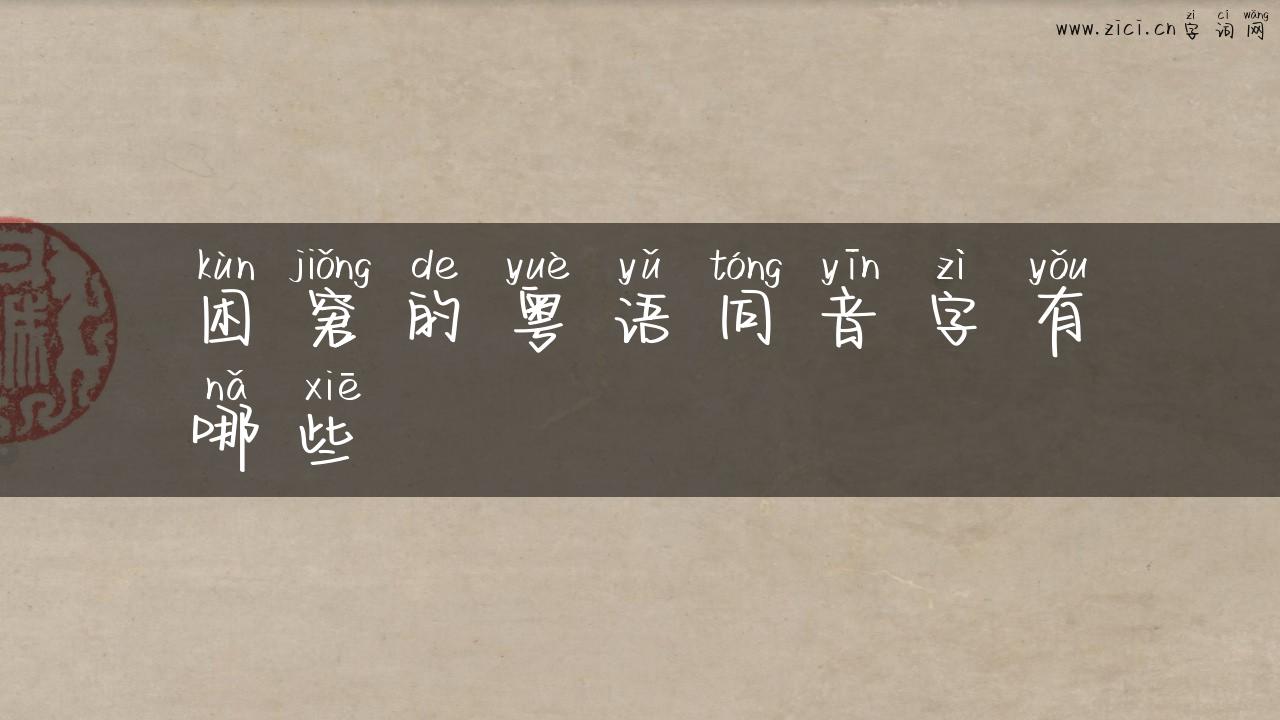 zì cí wǎng
www.zici.cn 字 词 网
kùn jiǒng de yuè yǔ tóng yīn zì yǒu
困 窘 的 粤 语 同 音 字 有
nǎ xiē
哪 些